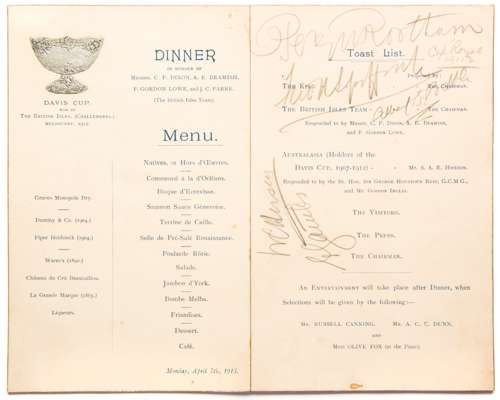 DAVIS CUP.
WON BY
THE BRITISH ISLES, (CHALLENGERS.)
MELBOURNE, 1912.
DINNER
IN HONOUR OF
MESSRS. C. P. DIXON, A. E. BEAMISH,
F. GORDON LOWE, AND J. C. PARKE.
(The British Isles Team.)
Menu.
Natives, or Hors d'Œuvres.
Consommé à la d'Orléans.
Bisque d'Ecrevisse.
Saumon Sauce Génevoise.
Terrine de Caille.
Selle de Pré-Salé Renaissance.
Poularde Rôtie.
Salade.
Jambon d'York.
Bombe Melba.
Friandises.
Dessert.
Café.
Graves Monopole Dry.
Duminy & Co. (1904.)
Piper Heidsieck (1904.)
Warre's (1890.)
Château du Cru
La Grande Marque (1875.)
Liqueurs.
Monday, April 7th, 1913.
TOAST LIST.
Proposed by
THE KING
THE CHAIRMAN.
THE BRITISH ISLES TEAM
THE CHAIRMAN.
Responded to by MESSRS. C. P. DIXON, A. E. BEAMISH,
and F. GORDON LOWE.
AUSTRALASIA (Holders of the
DAVIS CUP, 1907-1911)
MR. A. E.
Responded to by the RT. HON. SIR GEORGE HOUSTON REID, G.C.M.G.,
and MR.
THE VISITORS.
THE PRESS.
THE CHAIRMAN.
AN ENTERTAINMENT will take place after Dinner, when
Selections will be given by the following:—
MR. RUSSELL CANNING, MR. A. C. C. DUNN,
AND
MISS OLIVE FOX (at the Piano).